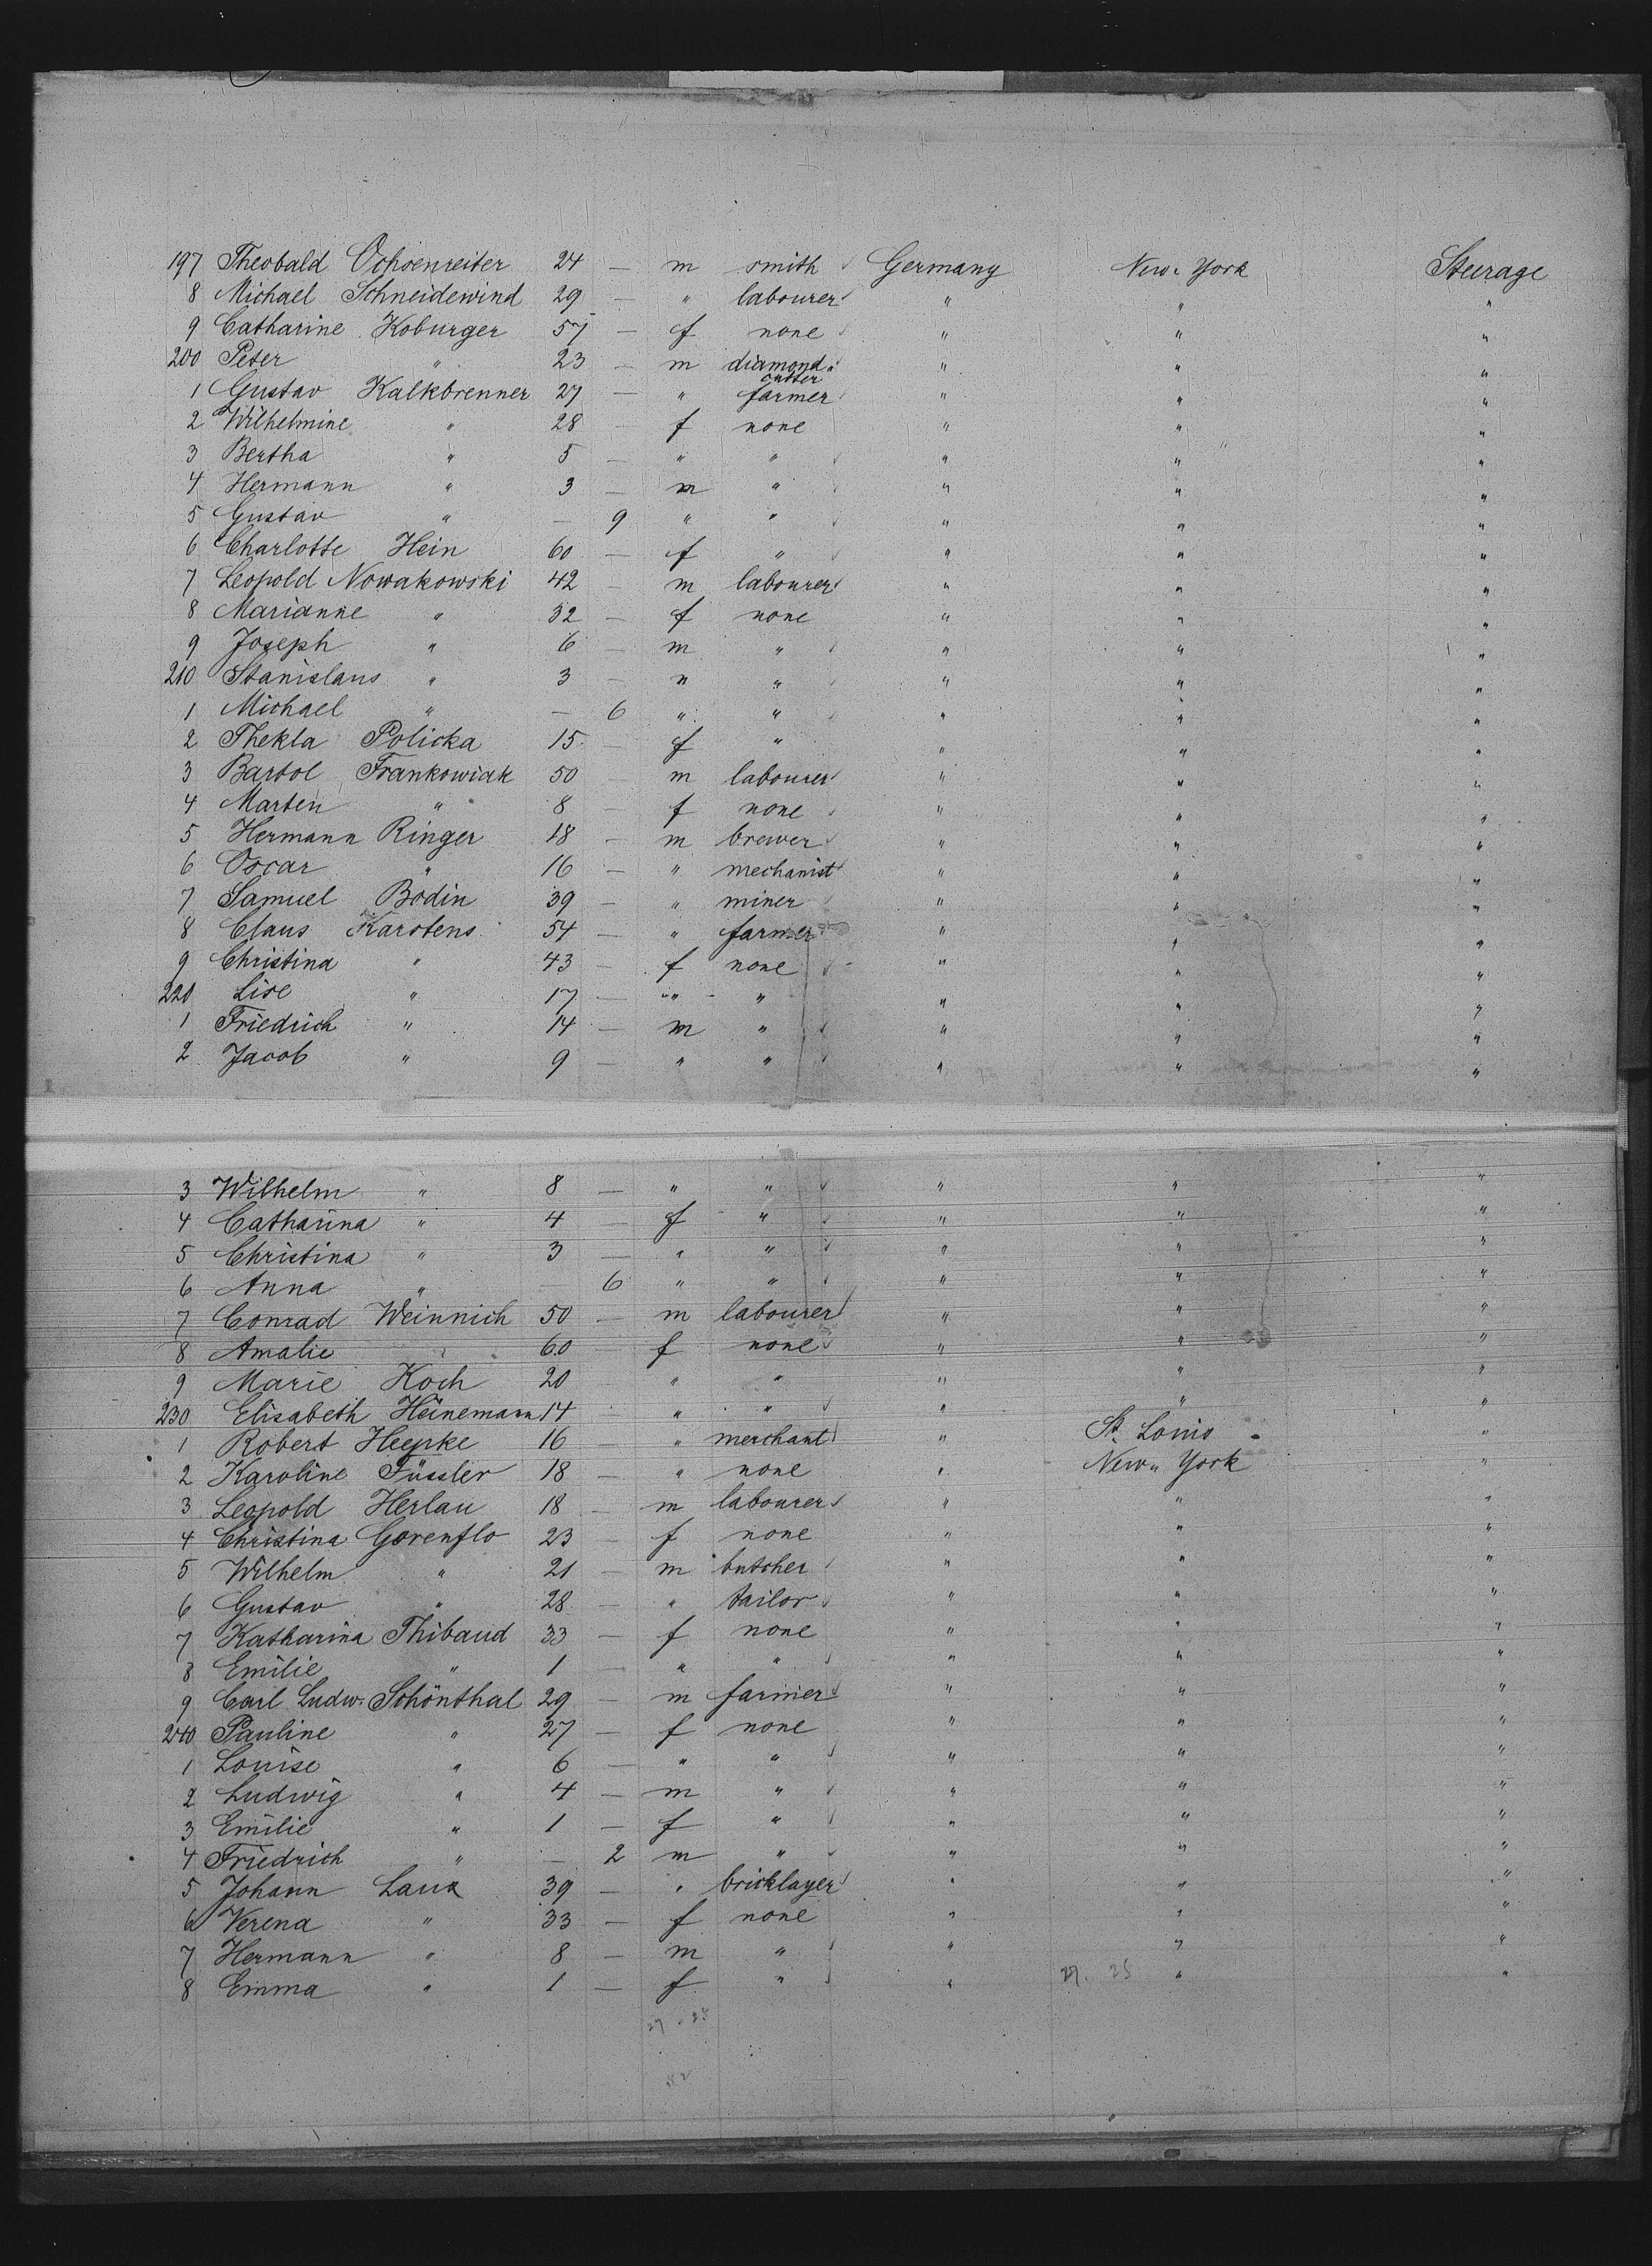 197 Theobald Ochsenreiter 24 — m smith Germany New-York Steerage
8 Michael Schneidewind 29 — " labourer " " "
9 Catharine Koburger 57 — f none " " "
200 Peter " 23 — m diamond- " " "
cutter
1 Gustav Kalkbrenner 27 — " farmer " " "
2 Wilhelmine " 28 — f none " " "
3 Bertha " 5 — " " " " "
4 Hermann " 3 — m " " " "
5 Gustav " — 9 " " " " "
6 Charlotte Hein 60 — f " " " "
7 Leopold Nowakowski 42 — m labourer " " "
8 Marianne " 32 — f none " " "
9 Joseph " 6 — m " " " "
210 Stanislaus " 3 — " " " " "
1 Michael " — 6 " " " " "
2 Thekla Policka 15 — f " " " "
3 Bartol Frankowiak 50 — m labourer " " "
4 Marten " 8 — f none " " "
5 Hermann Ringer 18 — m brewer " " "
6 Oscar " 16 — " mechanist " " "
7 Samuel Bodin 39 — " miner " " "
8 Claus Karstens 54 — " farmer " " "
9 Christina " 43 — f none " " "
220 Lise " 17 — " " " " "
1 Friedrich " 14 — m " " " "
2 Jacob " 9 — " " " " "
3 Wilhelm " 8 — " " " " "
4 Catharina " 4 — f " " " "
5 Christina " 3 — " " " " "
6 Anna " — 6 " " " " "
7 Conrad Weinnich 50 — m labourer " " "
8 Amalie " 60 f none " " "
9 Marie Koch 20 " " " " "
230 Elisabeth Heinemann 14 " " " " "
1 Robert Heepke 16 — " merchant " St. Louis "
2 Karoline Füssler 18 — " none " New-York "
3 Leopold Herlau 18 — m labourer " " "
4 Christina Gorenflo 23 — f none " " "
5 Wilhelm " 21 — m butcher " " "
6 Gustav " 28 — " tailor " " "
7 Katharina Thibaud 33 — f none " " "
8 Emilie " 1 — " " " " "
9 Carl Ludw. Schönthal 29 — m farmer " " "
240 Pauline " 27 — f none " " "
1 Louise " 6 — " " " " "
2 Ludwig " 4 — m " " " "
3 Emilie " 1 — f " " " "
4 Friedrich " — 2 m " " " "
5 Johann Laux 39 — " bricklayer " " "
6 Verena " 33 — f none " " "
7 Hermann " 8 — m " " " "
8 Emma " 1 — f " " 27. 25 " "
27 . 25
52